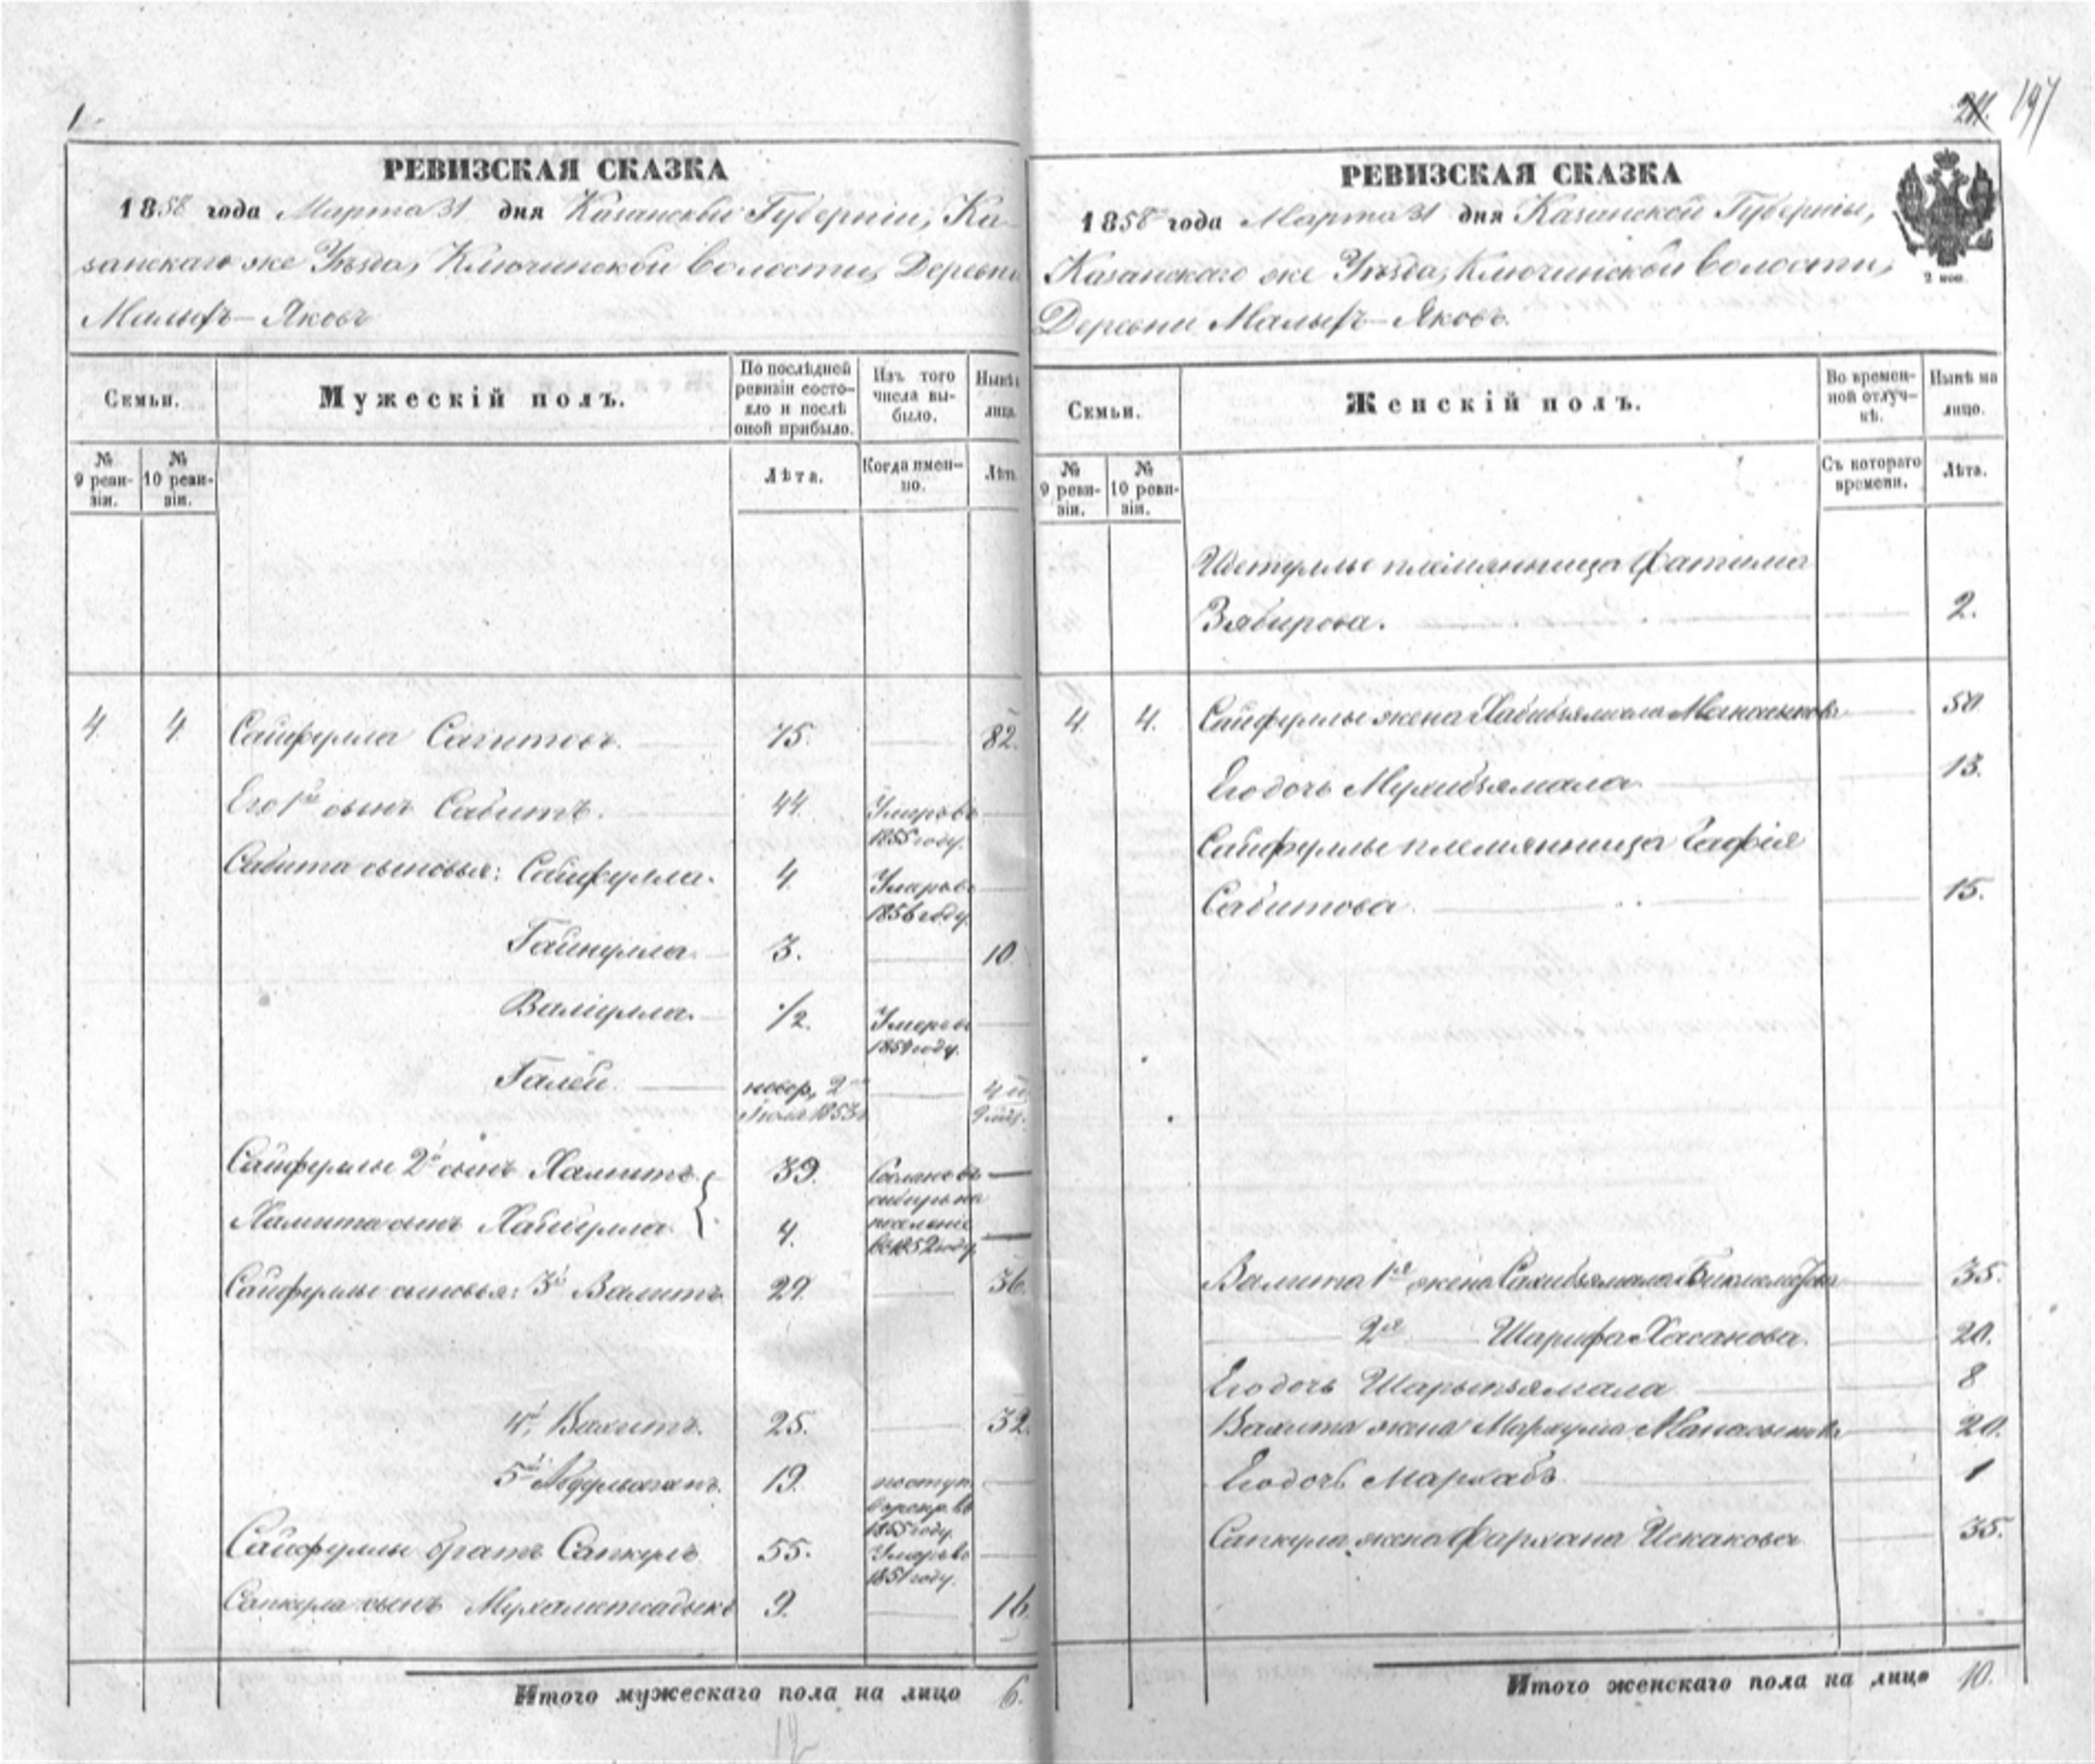 1.
РЕВИЗСКАЯ СКАЗКА
1858 года Марта 31 дня Казанской Губерніи, Ка-
занскаго же Уѣзда, Ключинской волости, Деревни
Малыхъ-Яковъ
Семьи.
Мужескій полъ.
По послѣдней
ревизіи состо-
яло и послѣ
оной прибыло.
Изъ того
числа вы-
было.
Нынѣ
лица.
№
9 реви-
зіи.
№
10 реви-
зіи.
Лѣта.
Когда имен-
но.
Лѣт.
4 4. Сайфулла Сагитовъ. 75. 82.
Его 1й сынъ Сабитъ. 44. Умеръ въ
1855 году.
Сабита сыновья: Сайфулла. 4. Умеръ въ
1856 году.
Гайнулла. 3. 10
Валіулла. 1/2. Умеръ въ
году.
Галей. новор. 2
Іюля 1853 4 и
9 мѣс.
Сайфуллы 2й сынъ Хамитъ 39. Сосланъ въ
сибирь на
Хамита сынъ Хабибулла 4. поселеніе
въ 1852 году
Сайфуллы сыновья: 3й Валитъ 29. 36.
4й, Вахитъ. 25. 32.
5й 19. поступ.
въ рекр. въ
1855 году.
Сайфуллы братъ Сапкулъ 55. Умеръ въ
1851 году.
Сапкула сынъ Мухаметсадыкъ 9. 16.
Итого мужескаго пола на лицо 6.
12
211. 197
РЕВИЗСКАЯ СКАЗКА
1858 года Марта 31 дня Казанской Губерніи,
Казанскаго же Уѣзда, Ключинской волости,
Деревни Малыхъ-Яковъ.
2 коп.
Семьи.
Женскій полъ.
Во времен-
ной отлуч-
кѣ.
Нынѣ на
лицо.
№
9 реви-
зіи.
№
10 реви-
зіи.
Съ котораго
времени.
Лѣта.
племянница Фатима
Зябирова. 2.
4. 4. Сайфуллы жена Хабибзямала 50.
Его дочь Мухибзямала 13.
Сайфуллы племянница Гафія
Сабитова. 15.
Валита 1я жена Сахибзямала 35.
2я Шарифа Хасанова. 20.
Его дочь Шарыпзямала 8
Вахита жена 20.
Его дочь Мархабз 1
Сапкула жена Фархана Искакова 35.
Итого женскаго пола на лицо 10.